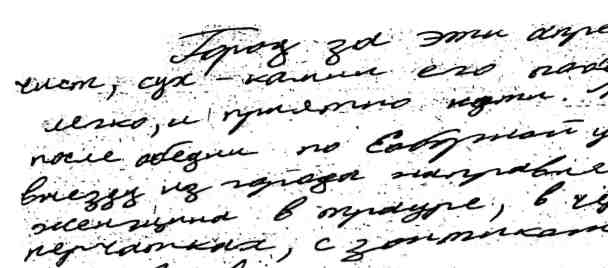 Город за эти апре
чист, сух - камни его поб
легко, и приятно идти.
после обедни по Соборной у
выезду из города направля
женщина в трауре, в чер
перчатках, с зонтиком